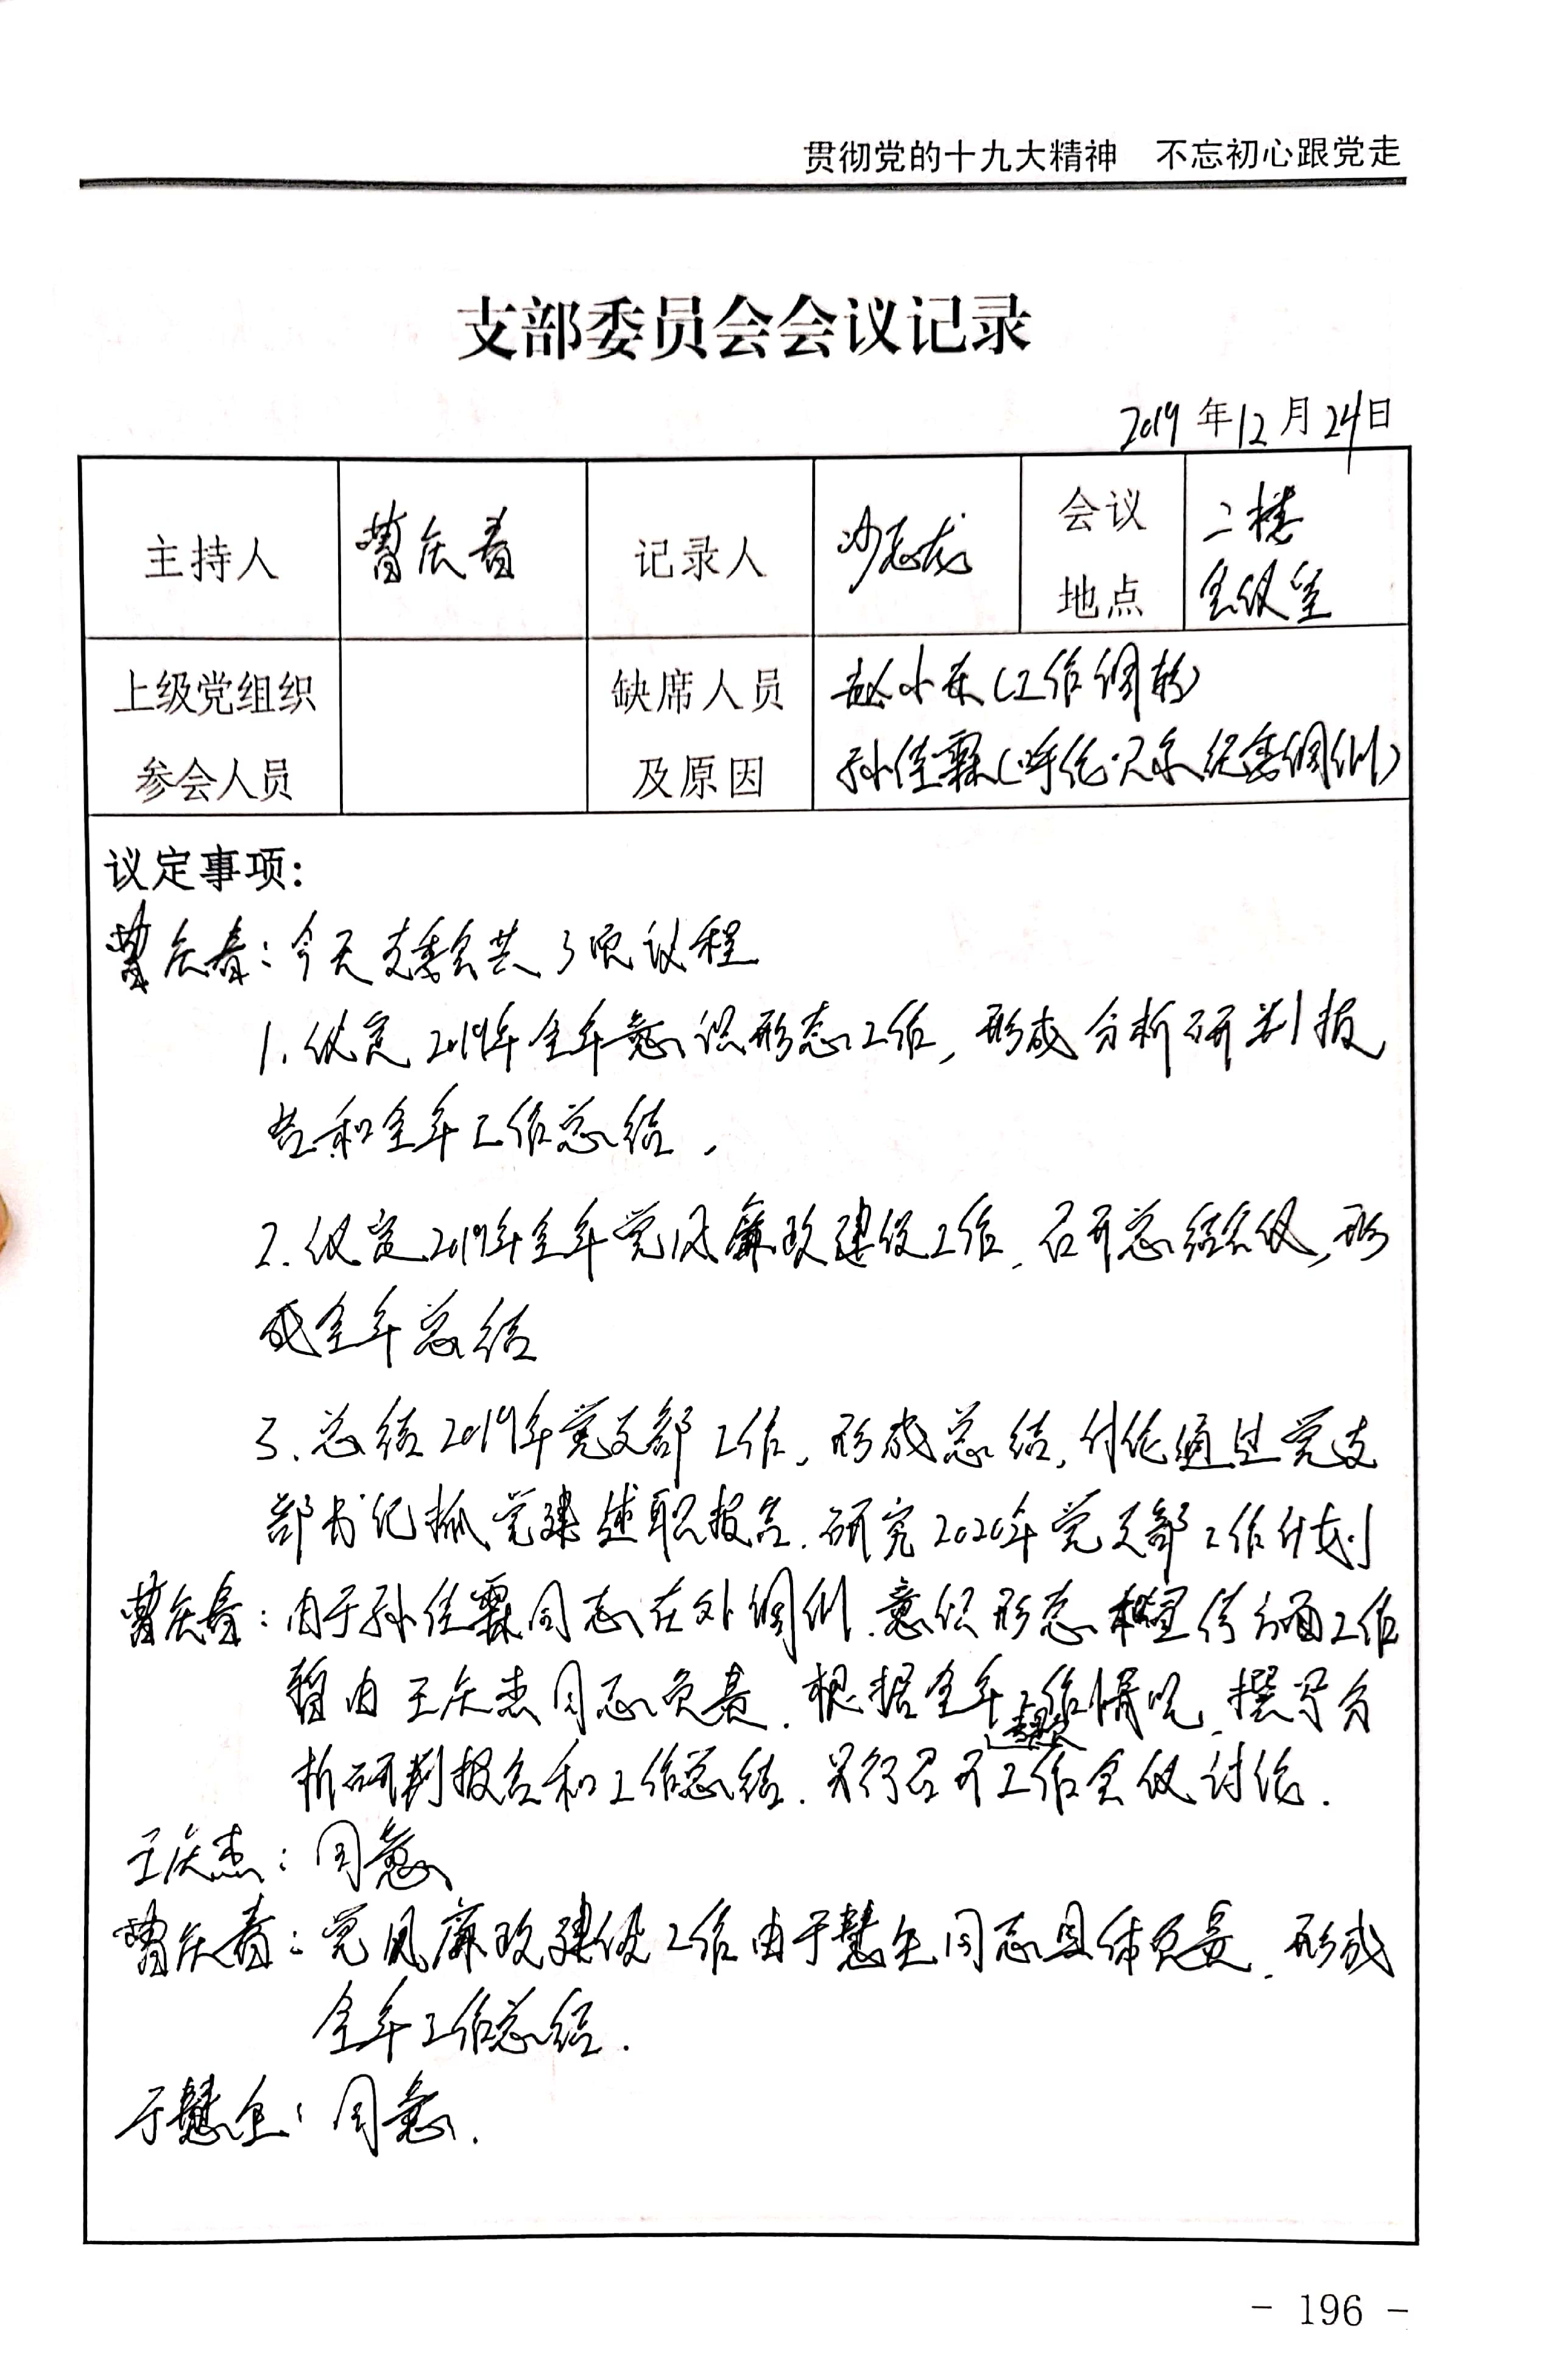 贯彻党的十九大精神 不忘初心跟党走
支部委员会会议记录
2019年12月24日
主持人 曹庆春 记录人 沙志龙 会议地点 二楼会议室
上级党组织参会人员 缺席人员及原因 赵小东(工作调动)
孙佳霖(呼伦贝尔纪委调训)
议定事项:
曹庆春:今天支委会共3项议程
1.议定2019年全年意识形态工作,形成分析研判报
告和全年工作总结.
2.议定2019年全年党风廉政建设工作.召开总结会议,形
成全年总结
3.总结2019年党支部工作,形成总结,讨论通过党支
部书记抓党建述职报告.研究2020年党支部工作计划
曹庆春:由于孙佳霖同志在外调训.意识形态 宣传方面工作
暂由王庆杰同志负责.根据全年工作情况.撰写分
析研判报告和工作总结.另行召开工作会议讨论.
王庆杰:同意
曹庆春:党风廉政建设工作由于慧生同志具体负责.形成
全年工作总结.
于慧生:同意.
- 196 -